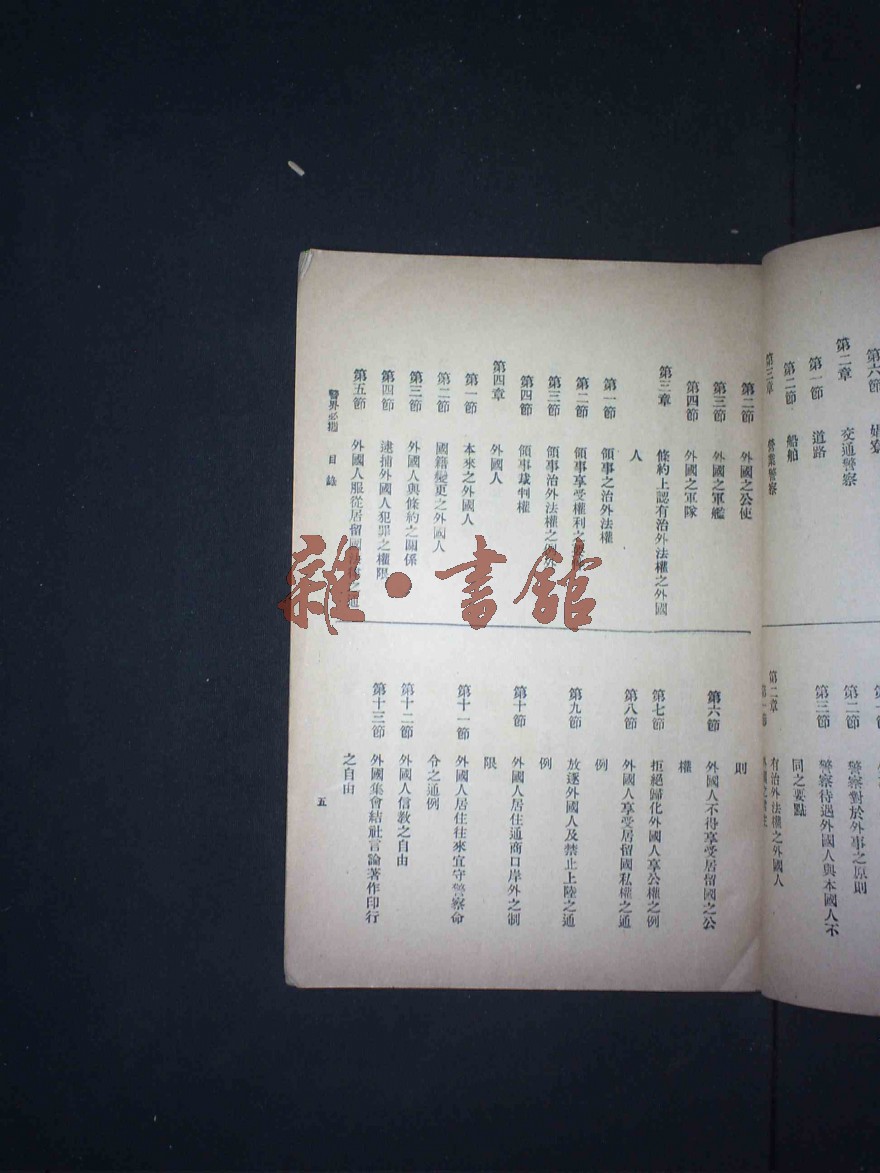 第六節
第二章　交通警察
第一節　道路
第二節　船舶
第三章　營業警察
第二節
第三節　警察對於外事之原則
警察待過外國人與本國人不
同之要點
第二章　有治外法權之外國人
第一節
第二節　外國之公使
第三節　外國之軍艦
第四節　外國之軍隊
第三章　條約上認有治外法權之外國
人
第一節　領事之治外法權
第二節　領事享受權利之
第三節　領事治外法權之例外
第四節　領事裁判權
第四章　外國人
第一節　本來之外國人
第二節　國籍變更之外國人
第三節　外國人與條約之關係
第四節　逮捕外國人犯罪之權限
第五節　外國人服從居留國法律之通
則
第六節　外國人不得享受居留國之公
權
第七節　拒絕歸化外國人享公權之例
第八節　外國人享受居留國私權之通
例
第九節　放逐外國人及禁止上陸之通
例
第十節　外國人居住通商口岸外之制
限
第十一節　外國人居住往來宜守警察命
令之通例
第十二節　外國人信教之自由
第十三節　外國集會結社言論著作印行
之自由
警界必攜　目錄
五
雜・書館